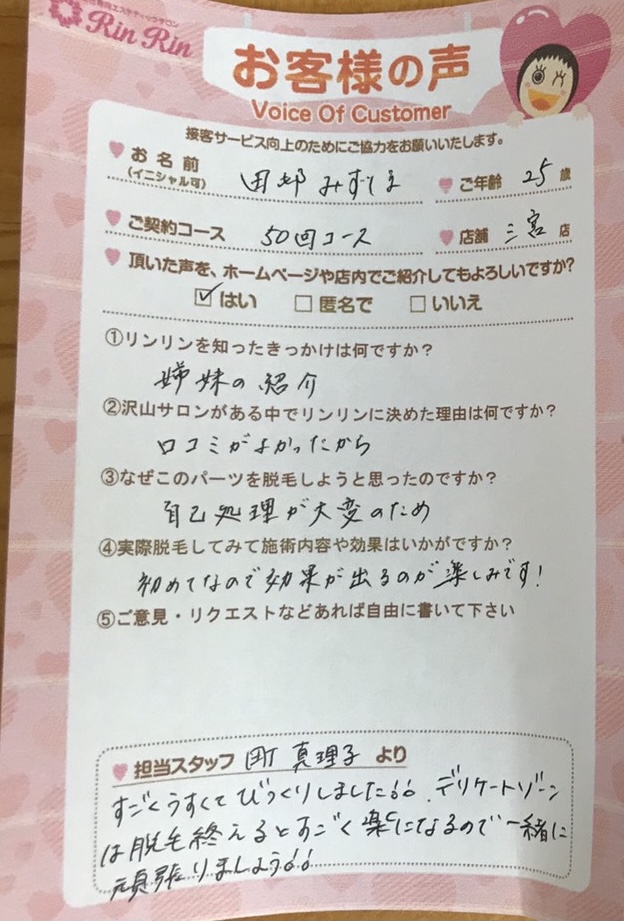 専門エステティックサロン
Rin Rin
お客様の声
Voice Of Customer
接客サービス向上のためにご協力をお願いいたします。
お名前 田邨 みずほ ご年齢 25 歳
(イニシャル可)
ご契約コース 50回コース 店舗 三宮 店
頂いた声を、ホームページや店内でご紹介してもよろしいですか?
☑はい □匿名で □いいえ
①リンリンを知ったきっかけは何ですか?
姉妹の紹介
②沢山サロンがある中でリンリンに決めた理由は何ですか?
口コミがよかったから
③なぜこのパーツを脱毛しようと思ったのですか?
自己処理が大変のため
④実際脱毛してみて施術内容や効果はいかがですか?
初めてなので効果が出るのが楽しみです!
⑤ご意見・リクエストなどあれば自由に書いて下さい
担当スタッフ 真理子 より
すごくうすくてびっくりしました!! デリケートゾーン
は脱毛終えるとすごく楽になるので一緒に
頑張りましょう!!